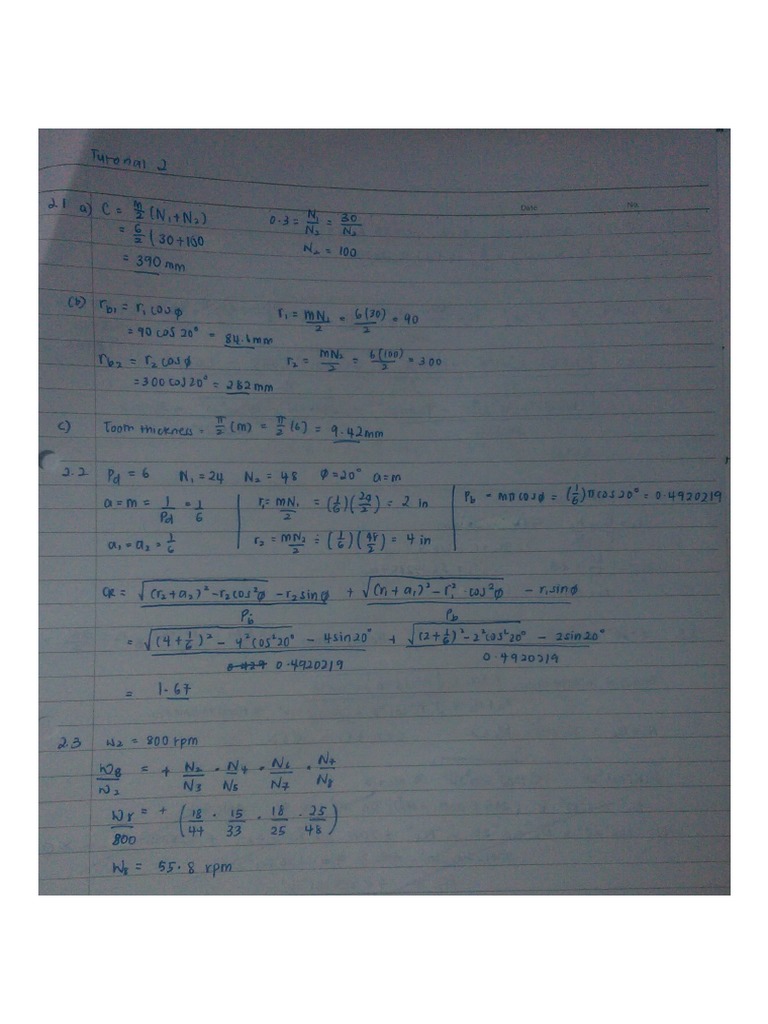 Tutorial 2
Date No.
2.1 a) C = m/2 (N₁+N₂) 0.3 = N₁/N₂ = 30/N₂
= 6/2 (30+100 N₂ = 100
= 390 mm
(b) rb₁ = r₁ cos φ r₁ = mN₁/2 = 6(30)/2 = 90
= 90 cos 20° = 84.6 mm
rb₂ = r₂ cos φ r₂ = mN₂/2 = 6(100)/2 = 300
= 300 cos 20° = 282 mm
c) Tooth thickness = π/2 (m) = π/2 (6) = 9.42 mm
2.2 Pd = 6 N₁ = 24 N₂ = 48 φ = 20° a = m
a = m = 1/Pd = 1/6 r₁ = mN₁/2 = (1/6)( /2) = 2 in Pb = mπ cos φ = (1/6)π cos 20° = 0.4920219
a₁ = a₂ = 1/6 r₂ = mN₂/2 = (1/6)(48/2) = 4 in
CR = √((r₂+a₂)² - r₂cos²φ) - r₂ sin φ / Pb + √((r₁+a₁)² - r₁² · cos²φ) - r₁ sin φ / Pb
= √((4+1/6)² - 4² cos² 20°) - 4 sin 20° / 0.4920219 + √((2+1/6)² - 2² cos² 20°) - 2 sin 20° / 0.4920219
= 1.67
2.3 W₂ = 800 rpm
W₈/W₂ = + N₂/N₃ · N₄/N₅ · N₆/N₇ · N₇/N₈
W₈/800 = + (18/44 · 15/33 · 18/25 · 25/48)
W₈ = 55.8 rpm